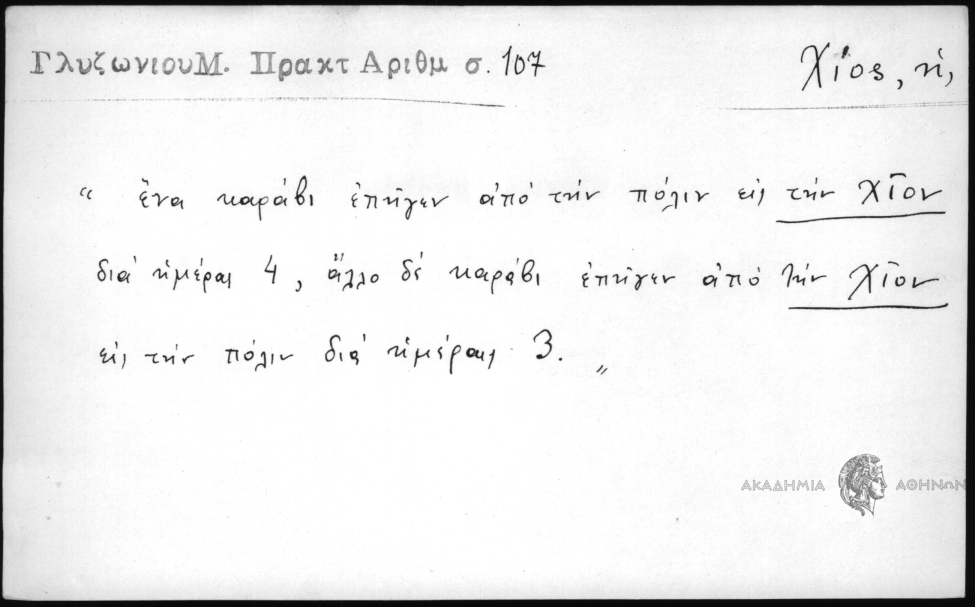 ΓλυζωνιουΜ. Πρακτ Αριθμ σ. 107
Χίος, ἡ,
“ ἕνα καράβι ἐπῆγεν ἀπό τήν πόλιν εἰς τήν Χῖον
διά ἡμέρας 4, ἄλλο δέ καράβι ἐπῆγεν ἀπό τήν Χῖον
εἰς τήν πόλιν διά ἡμέρας 3. „
ΑΚΑΔΗΜΙΑ ΑΘΗΝΩΝ